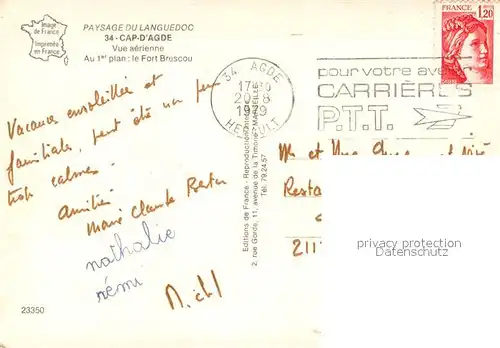 Image
de France
Imprimée
en France
PAYSAGE DU LANGUEDOC
34 - CAP-D'AGDE
Vue aérienne
Au 1er plan: le Fort Brescou
FRANCE
1,20
34 AGDE
17H30
20-8
1979
HERAULT
pour votre avenir
CARRIÈRES
P.T.T.
Vacance ensoleillée et
familiales, peut être un peu
trop calmes.
Amitiés
Marie Claude
nathalie
rémi
Editions de France - Reproduction
2, rue Gorde, 11, avenue de la Timone - MARSEILLE
Tél. 79.24.57
M et Mme
Resta
211
privacy protection
Datenschutz
23350